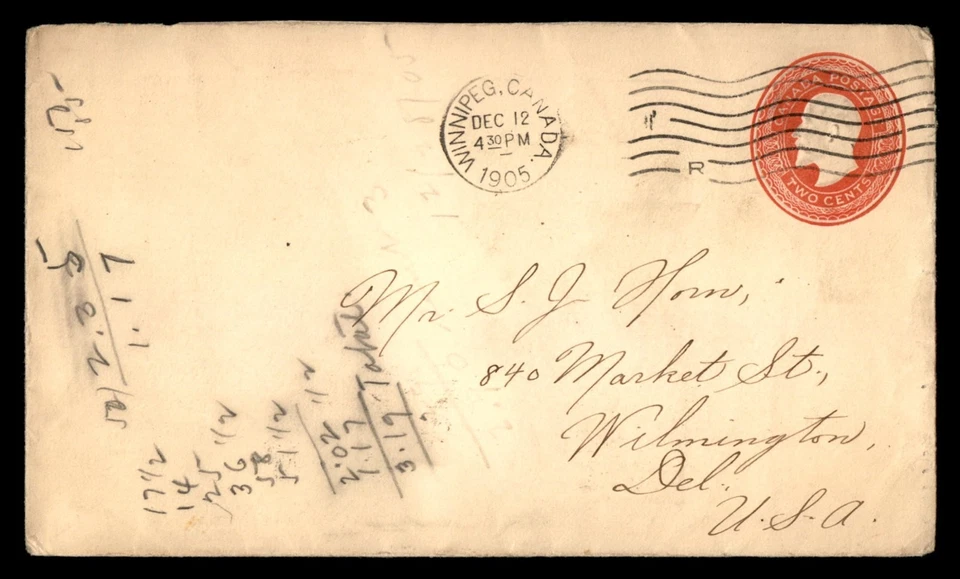 WINNIPEG, CANADA.
DEC 12
4 30 PM
1905
R
CANADA POSTAGE
TWO CENTS
Mr. S. J. Horn,
840 Market St.,
Wilmington,
Del.
U. S. A.
17 1/2
14
25
36 1/2
58
51 1/2
2.02 1/2
1.17
3.19 Total
1.17